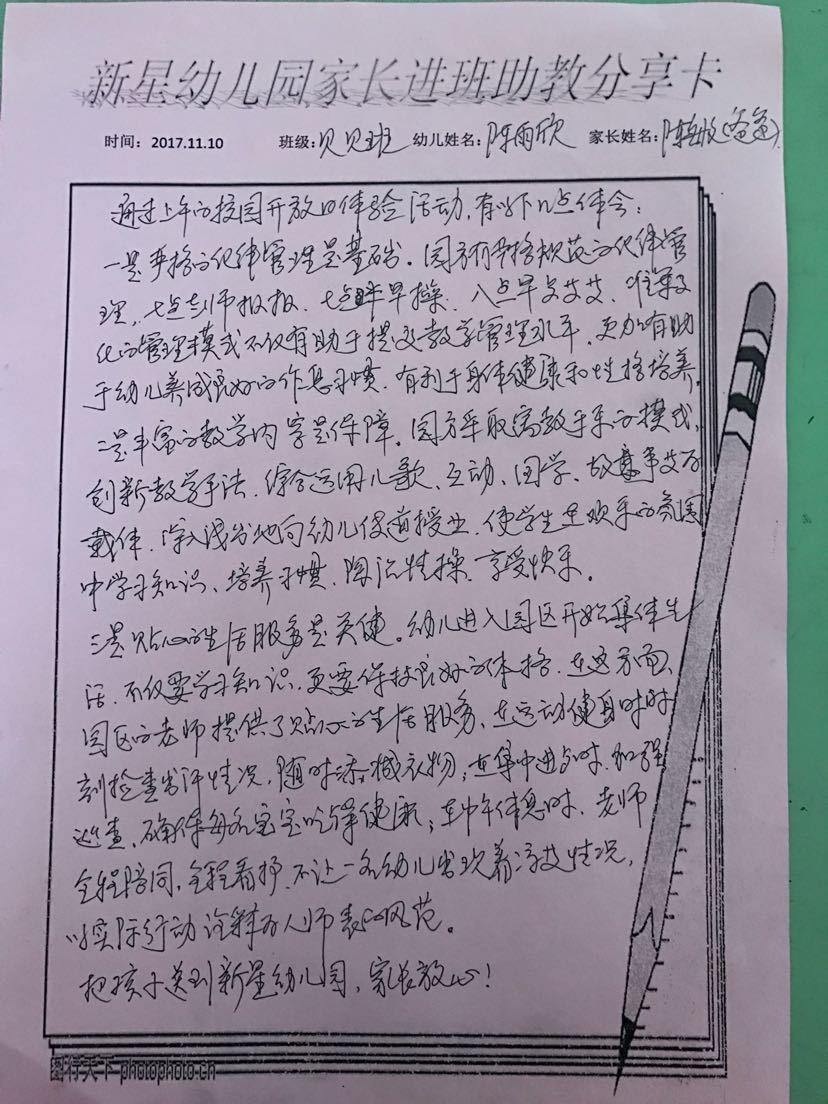 新星幼儿园家长进班助教分享卡
时间：2017.11.10 班级：贝贝班 幼儿姓名：陈雨欣 家长姓名：陈 (爸爸)
通过上午的校园开放日体验活动，有以下几点体会：
一是严格的纪律管理是基础。园方有严格规范的纪律管
理，七点 师报报、七点半早操、八点早点 、准军事
化的管理模式不仅有助于提及教学管理水平，更加有助
于幼儿养成良好的作息习惯，有利于身体健康和性格培养。
二是丰富的教学内容是保障。园方采取寓教于乐的模式，
创新教学手法，综合运用儿歌、互动、国学、故事等 为
载体，深入浅出地向幼儿传道授业，使学生在欢乐的氛围
中学习知识、培养习惯、陶冶性操、享受快乐。
三是贴心的生活服务是关健。幼儿进入园区开始集体生
活，不仅要学习知识，更要保持良好的体格，在这方面，
园区的老师提供了贴心的生活服务，在运动健身时时
刻检查出汗情况，随时添减衣物；在集中进 时，加强
巡查，确保每名宝宝吃得健康；在中午休息时，老师
全程陪同，全程看护，不让一名幼儿出现着凉 情况，
以实际行动诠释为人师表的风范。
把孩子送到新星幼儿园，家长放心！
图行天下 photophoto.cn